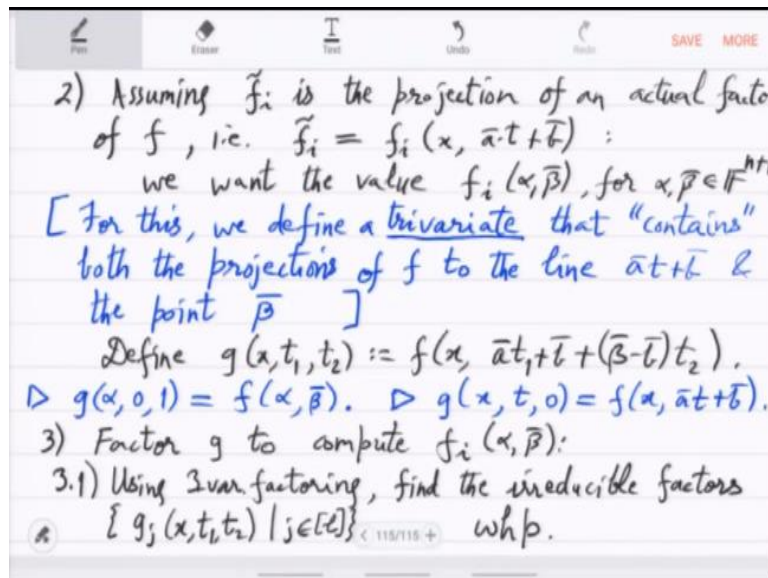 Pen Eraser Text Undo Redo SAVE MORE
2) Assuming f̃ᵢ is the projection of an actual facto
of f, i.e. f̃ᵢ = fᵢ(x, ā·t+b̄) :
we want the value fᵢ(α, β̄), for α, β̄ ∈ 𝔽ⁿ⁺
[ For this, we define a trivariate that "contains"
both the projections of f to the line āt+b̄ &
the point β̄ ]
Define g(x,t₁,t₂) := f(x, āt₁+b̄+(β̄-b̄)t₂).
▷ g(α,0,1) = f(α,β̄). ▷ g(x,t,0) = f(x, āt+b̄).
3) Factor g to compute fᵢ(α,β̄):
3.1) Using 3var. factoring, find the irreducible factors
{ gⱼ(x,t₁,t₂) | j∈[ℓ]} whp.
115/115